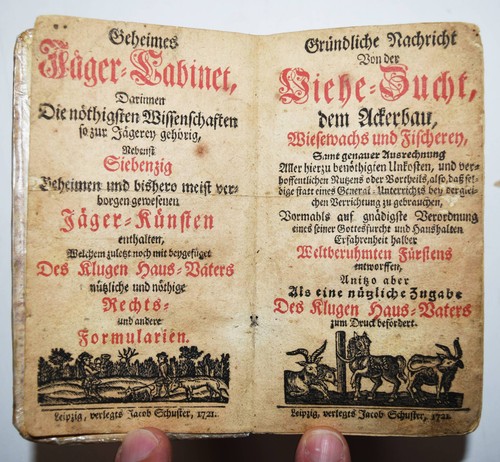 Geheimes
Jäger-Cabinet,
Darinnen
Die nöthigsten Wissenschaften
so zur Jägerey gehörig,
Nebenst
Siebenzig
Geheimen und bishero meist ver-
borgen gewesenen
Jäger-Künsten
enthalten,
Welchem zuletzt noch mit beygefüget
Des Klugen Haus-Vaters
nützliche und nöthige
Rechts-
und andere
Formularien.
Leipzig, verlegts Jacob Schuster, 1721.
Gründliche Nachricht
Von der
Viehe-Zucht,
dem Ackerbau,
Wiesewachs und Fischerey,
Samt genauer Ausrechnung
Aller hierzu benöthigten Unkosten, und ver-
hoffentlichen Nutzens oder Vortheils, also, daß sel-
bige statt eines General-Unterrichts bey dergleic-
chen Verrichtung zu gebrauchen,
Vormahls auf gnädigste Verordnung
eines seiner Gottesfurcht und Haushalten
Erfahrenheit halber
Weltberuhmten Fürstens
entworffen,
Anitzo aber
Als eine nützliche Zugabe
Des Klugen Haus-Vaters
zum Druck befördert.
Leipzig, verlegts Jacob Schuster, 1721.